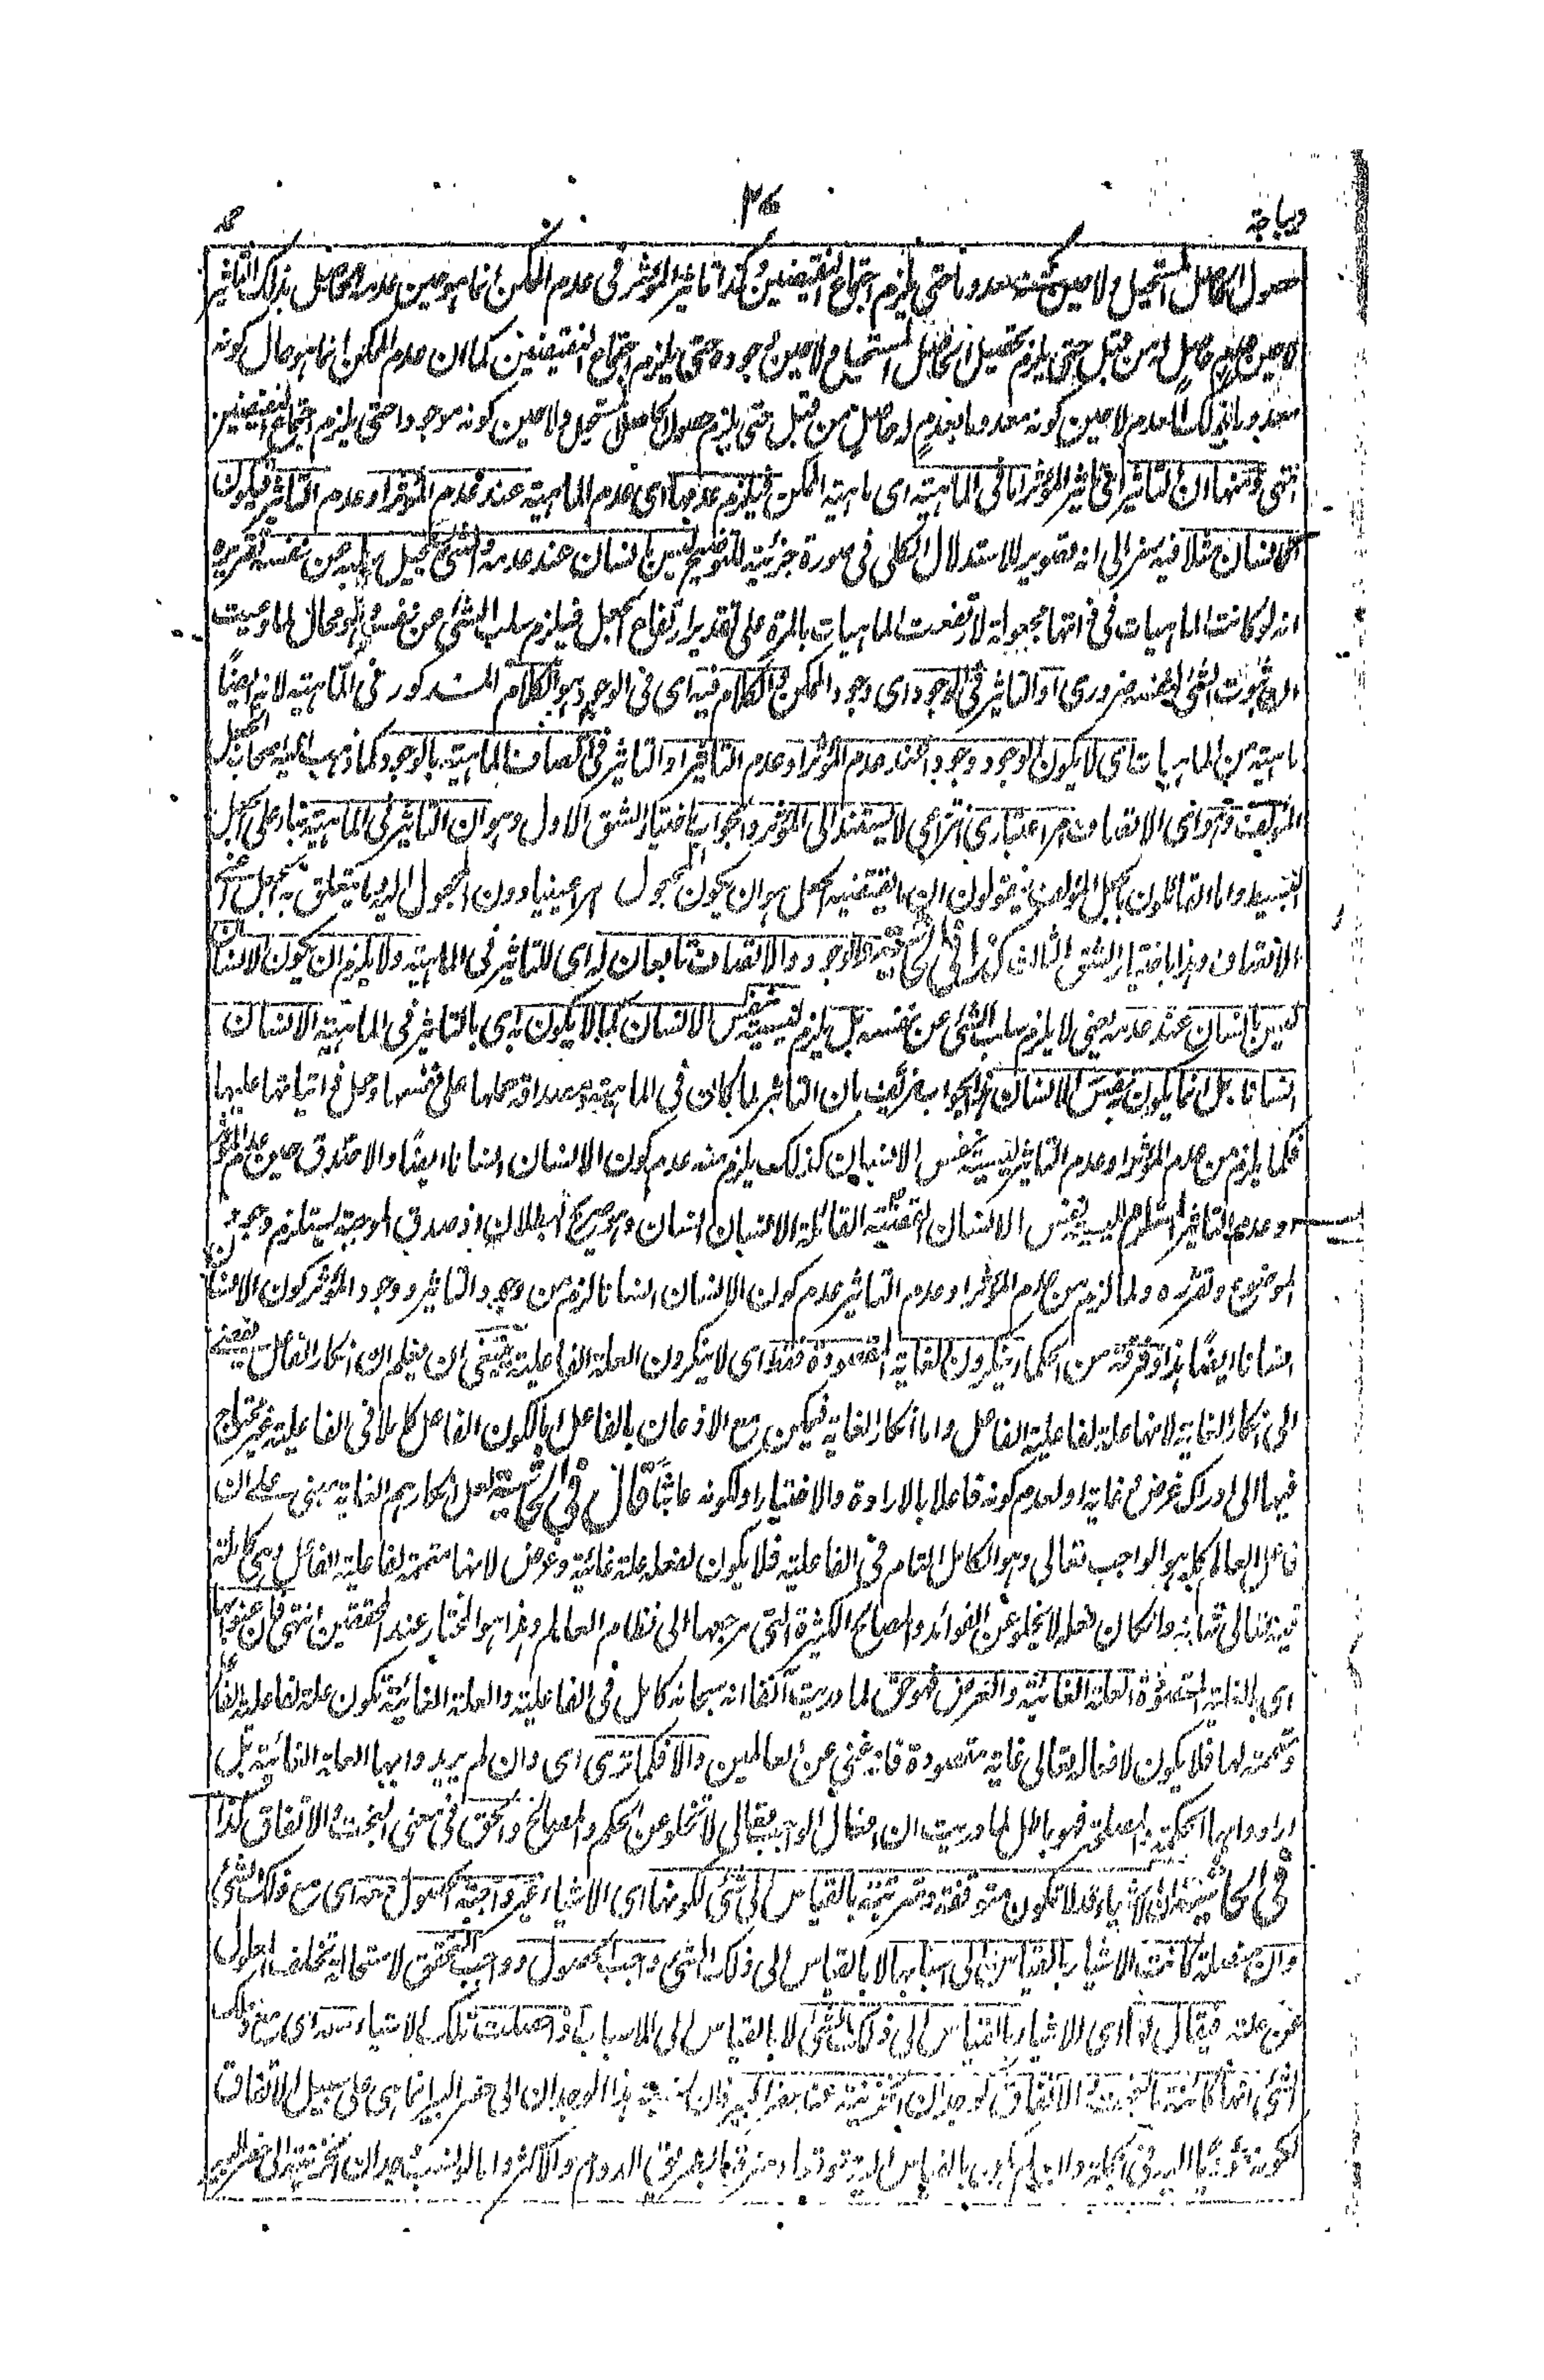 ديباجة
حصول الحاصل المستحيل ولا حين كونه معدوما حتى يلزم اجتماع النقيضين وكذا تاثير المؤثر فى عدم الممكن انما هو حين عدمه الحاصل بذلك التاثير
لا حين عدم حاصل له من قبل حتى يلزم تحصيل الحاصل المستحيل ولا حين وجوده حتى يلزم اجتماع النقيضين كما ان عدم الممكن انما هو حال كونه
معدوما بذلك العدم لا حين كونه معدوما بعدم له حاصل من قبل حتى يلزم حصول الحاصل المستحيل ولا حين كونه موجودا حتى يلزم اجتماع النقيضين
انتهى ومنها ان التاثير اى تاثير المؤثر اما فى الماهية اى ماهية الممكن فيلزم عدمها اى عدم الماهية عند عدم المؤثر او عدم التاثير فيكون
الانسان مثلا فيه رمز الى انه تصوير للاستدلال الكلى فى صورة جزئية للتوضيح ليس بانسان عند عدمه والشئ يستحيل سلبه عن نفسه تقريره
انه لو كانت الماهيات فى ذاتها مجعولة لارتفعت الماهيات بالمرة على تقدير ارتفاع الجعل فيلزم سلب الشئ عن نفسه وهو محال لما دريت
ان ثبوت الشئ لنفسه ضرورى او التاثير فى الوجود اى وجود الممكن فالكلام فيه اى فى الوجود هو الكلام المذكور فى الماهية لانه ايضًا
ماهية من الماهيات اى لا يكون الوجود وجودا عند عدم المؤثر او عدم التاثير او التاثير فى اتصاف الماهية بالوجود كما ذهب اليه اصحاب الجعل
المؤلف وهو اى الاتصاف امر اعتبارى انتزاعى لا يستند الى المؤثر والجواب باختيار الشق الاول وهو ان التاثير فى الماهية بناء على الجعل
البسيط واما القائلون بالجعل المؤلف فيقولون ان ما يقتضيه الجعل هو ان يكون المجعول امرا عينيا دون المجعول اليه وما يتعلق به الجعل اعنى
الاتصاف وهذا باختيار الشق الثالث كذا فى الحاشية والوجود والاتصاف تابعان له اى للتاثير فى الماهية ولا يلزم ان يكون الانسان
ليس بانسان عند عدمه يعنى لا يلزم سلب الشئ عن نفسه بل يلزم ليسية نفس الانسان كما لا يكون به اى بالتاثير فى الماهية الانسان
انسانا بل انما يكون به نفس الانسان هذا الجواب مزيف بان التاثير لما كان فى الماهية ومصداق حملها على نفسها وحمل ذاتياتها عليها
فكما يلزم من عدم المؤثر او عدم التاثير ليسية نفس الانسان كذلك يلزم منه عدم كون الانسان انسانا ايضًا والا صدق حين عدم المؤثر
او عدم التاثير المستلزم لليسية نفس الانسان القضية القائلة الانسان انسان وهو صريح البطلان اذ صدق الموجبة يستلزم وجود
الموضوع وتقرره ولما لزم من عدم المؤثر او عدم التاثير عدم كون الانسان انسانا لزم من وجود التاثير ووجود المؤثر كون الانسان
انسانا ايضًا هذا وفرقة من الحكماء ينكرون الغاية المقصودة فقط اى لا ينكرون العلة الفاعلية ينبغى ان يعلم ان انكار الفاعل يفضى
الى انكار الغاية لانها علة لفاعلية الفاعل واما انكار الغاية فيمكن مع الاذعان بالفاعل اما لكون الفاعل كاملا فى الفاعلية غير محتاج
فيها الى ادراك غرض مع غاية او لعدم كونه فاعلا بالارادة والاختيار او لكونه عابثًا قال فى الحاشية لعل انكارهم الغاية مبنى على ان
فاعل العالم كله هو الواجب تعالى وهو الكامل التام فى الفاعلية فلا يكون لفعله علة غائية وغرض لانها متممة لفاعلية الفاعل وهى كاملة
فيه تعالى شانه وان كان فعله لا يخلو عن الفوائد والمصالح الكثيرة التى مرجعها الى نظام العالم وهذا هو المختار عند المحققين انتهى فان عنوا بها
اى بالغاية المقصودة العلة الغائية والغرض فهو حق لما دريت آنفا انه سبحانه كامل فى الفاعلية والعلة الغائية تكون علة لفاعلية الفاعل
ومتممة لها فلا يكون لافعاله تعالى غاية مقصودة فانه غنى عن العالمين والا فكما ترى اى وان لم يريدوا بها العلة الغائية بل
ارادوا بها الحكمة والمصلحة فهو باطل لما دريت ان افعال الواجب تعالى لا تخلو عن الحكم والمصالح والحق فى معنى البخت والاتفاق كذا
فى الحاشية ان الاشياء قد لا تكون متوقفة ومترتبة بالقياس الى شئ لكونها اى الاشياء غير واجبة الحصول معه اى مع ذلك الشئ
وان كانت الاشياء بالقياس الى اسبابها لا بالقياس الى ذلك الشئ واجب الحصول وواجب التحقق لاستحالة تخلف المعلول
عن علته فيقال لها اى الاشياء بالقياس الى ذلك الشئ لا بالقياس الى الاسباب اذا حصلت تلك الاشياء معه اى مع ذلك
الشئ انها كائنة بالبخت والاتفاق كوجدان الخزينة عند حفر البير فان نسبة هذا الوجدان الى حفر البير انما هى على سبيل الاتفاق
لكونه مؤديًا اليه فى الجملة وان لم يكن بالقياس اليه متوقعا ومترقبا بطريق الدوام والاكثر واما بالنسبة وجدان الخزينة الى حفر البير